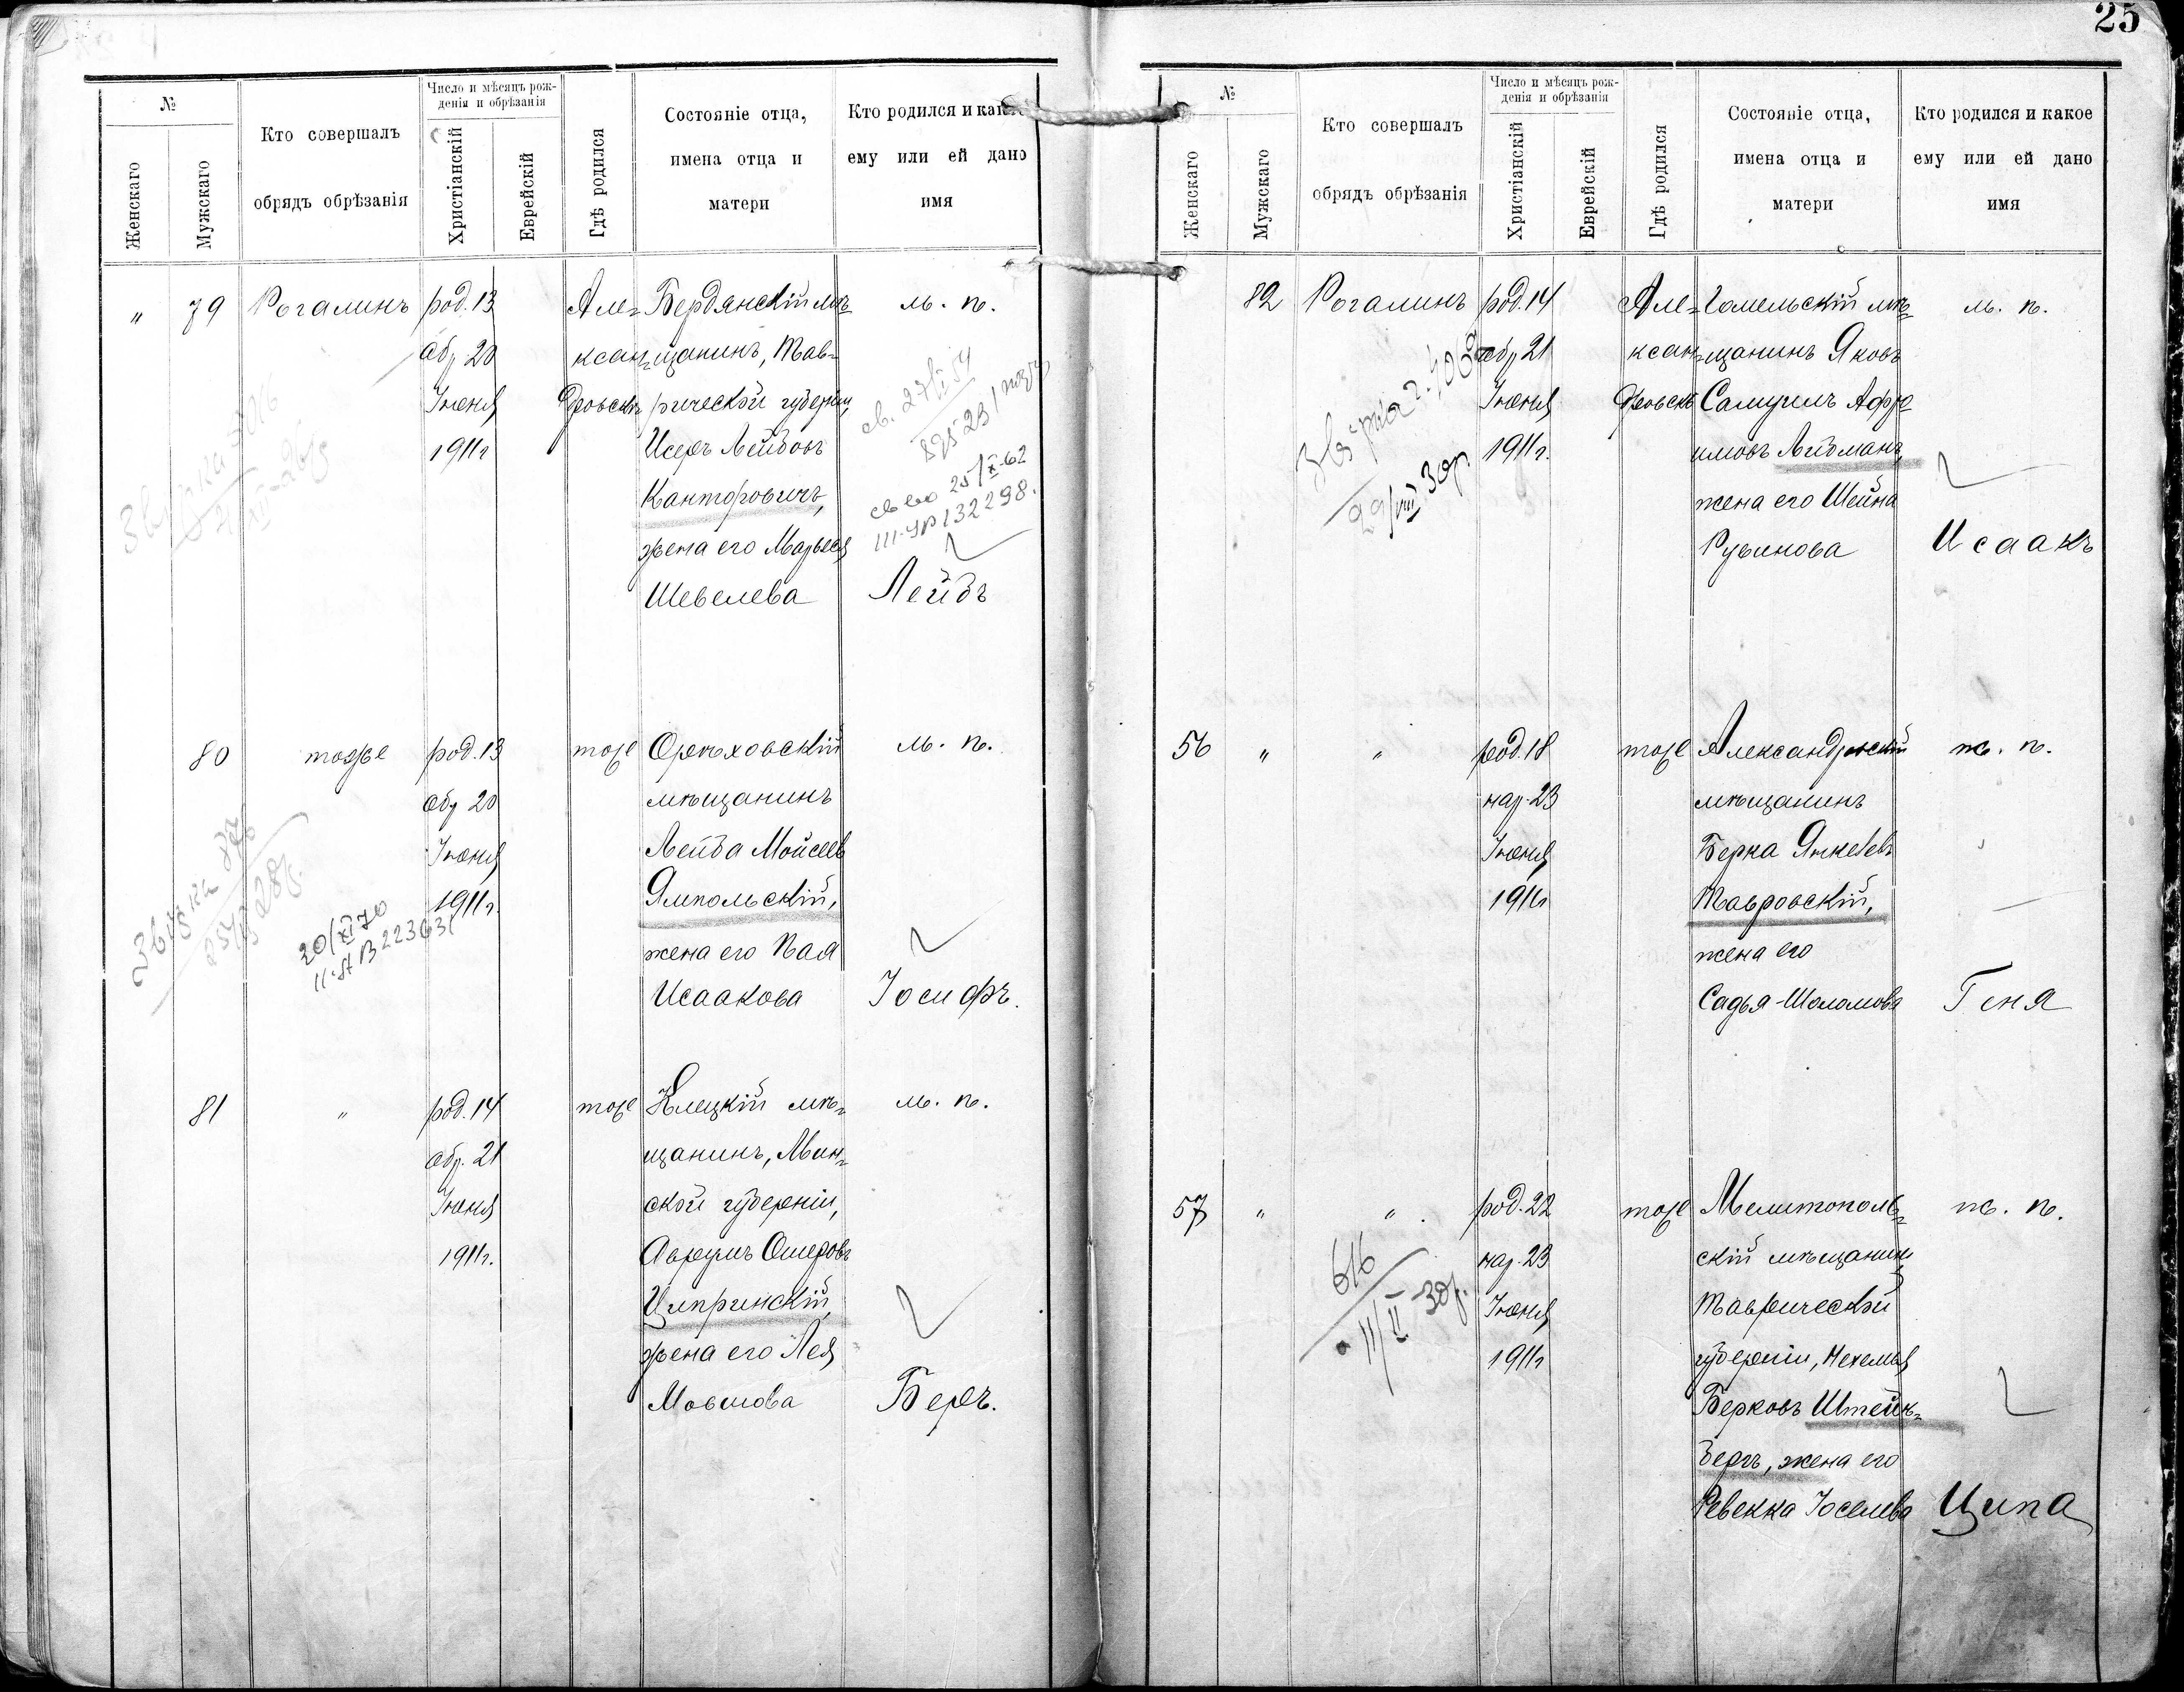 25
№
Женскаго
Мужскаго
Кто совершалъ
обрядъ обрѣзанія
Число и мѣсяцъ рож-
денія и обрѣзанія
Христіанскій
Еврейскій
Гдѣ родился
Состояніе отца,
имена отца и
матери
Кто родился и какое
ему или ей дано
имя
"
79
Рогалинъ
род. 13
обр 20
Іюня
1911г
Але=
ксан=
дровскъ
Бердянскій мѣ=
щанинъ, Тав=
рической губерніи,
Исеръ Лейбовъ
Канторовичъ,
жена его Марьяся
Шевелева
м. п.
св. 27/VI 54
св во 25/X-62
III-УР 132298.
Лейбъ
80
тоже
род. 13
обр 20
Іюня
1911г.
тоже
Орѣховскій
мѣщанинъ
Лейба Мойсеевъ
Ямпольскій,
жена его Пая
Исаакова
м. п.
20/XI 70
Іосифъ.
81
"
род. 14
обр. 21
Іюня
1911г.
тоже
Клецкій мѣ=
щанинъ, Мин=
ской губерніи,
Аврумъ Ошеровъ
Ципринскій,
жена его Лея
Мовшова
м. п.
Беръ.
№
Женскаго
Мужскаго
Кто совершалъ
обрядъ обрѣзанія
Число и мѣсяцъ рож-
денія и обрѣзанія
Христіанскій
Еврейскій
Гдѣ родился
Состояніе отца,
имена отца и
матери
Кто родился и какое
ему или ей дано
имя
82
Рогалинъ
род. 14
обр 21
Іюня
1911г.
Але=
ксан=
дровскъ
Гомельскій мѣ=
щанинъ Яковъ
Самуилъ Афро
имовъ Лидманъ,
жена его Шейна
Рувинова
м. п.
29/VIII 30р.
Исаакъ
56
"
"
род. 18
нар. 23
Іюня
1911г
тоже
Александровскій
мѣщанинъ
Берка Янкелевъ
Тавровскій,
жена его
Садья-Шоломова
ж. п.
Геня
57
"
"
род. 22
нар. 23
Іюня
1911г
тоже
Мелитополь=
скій мѣщанинъ
Таврической
губерніи, Нехемья
Берковъ Штейн=
бергъ, жена его
Ревекка Іоселева
ж. п.
616
11/II-30р.
Ципа